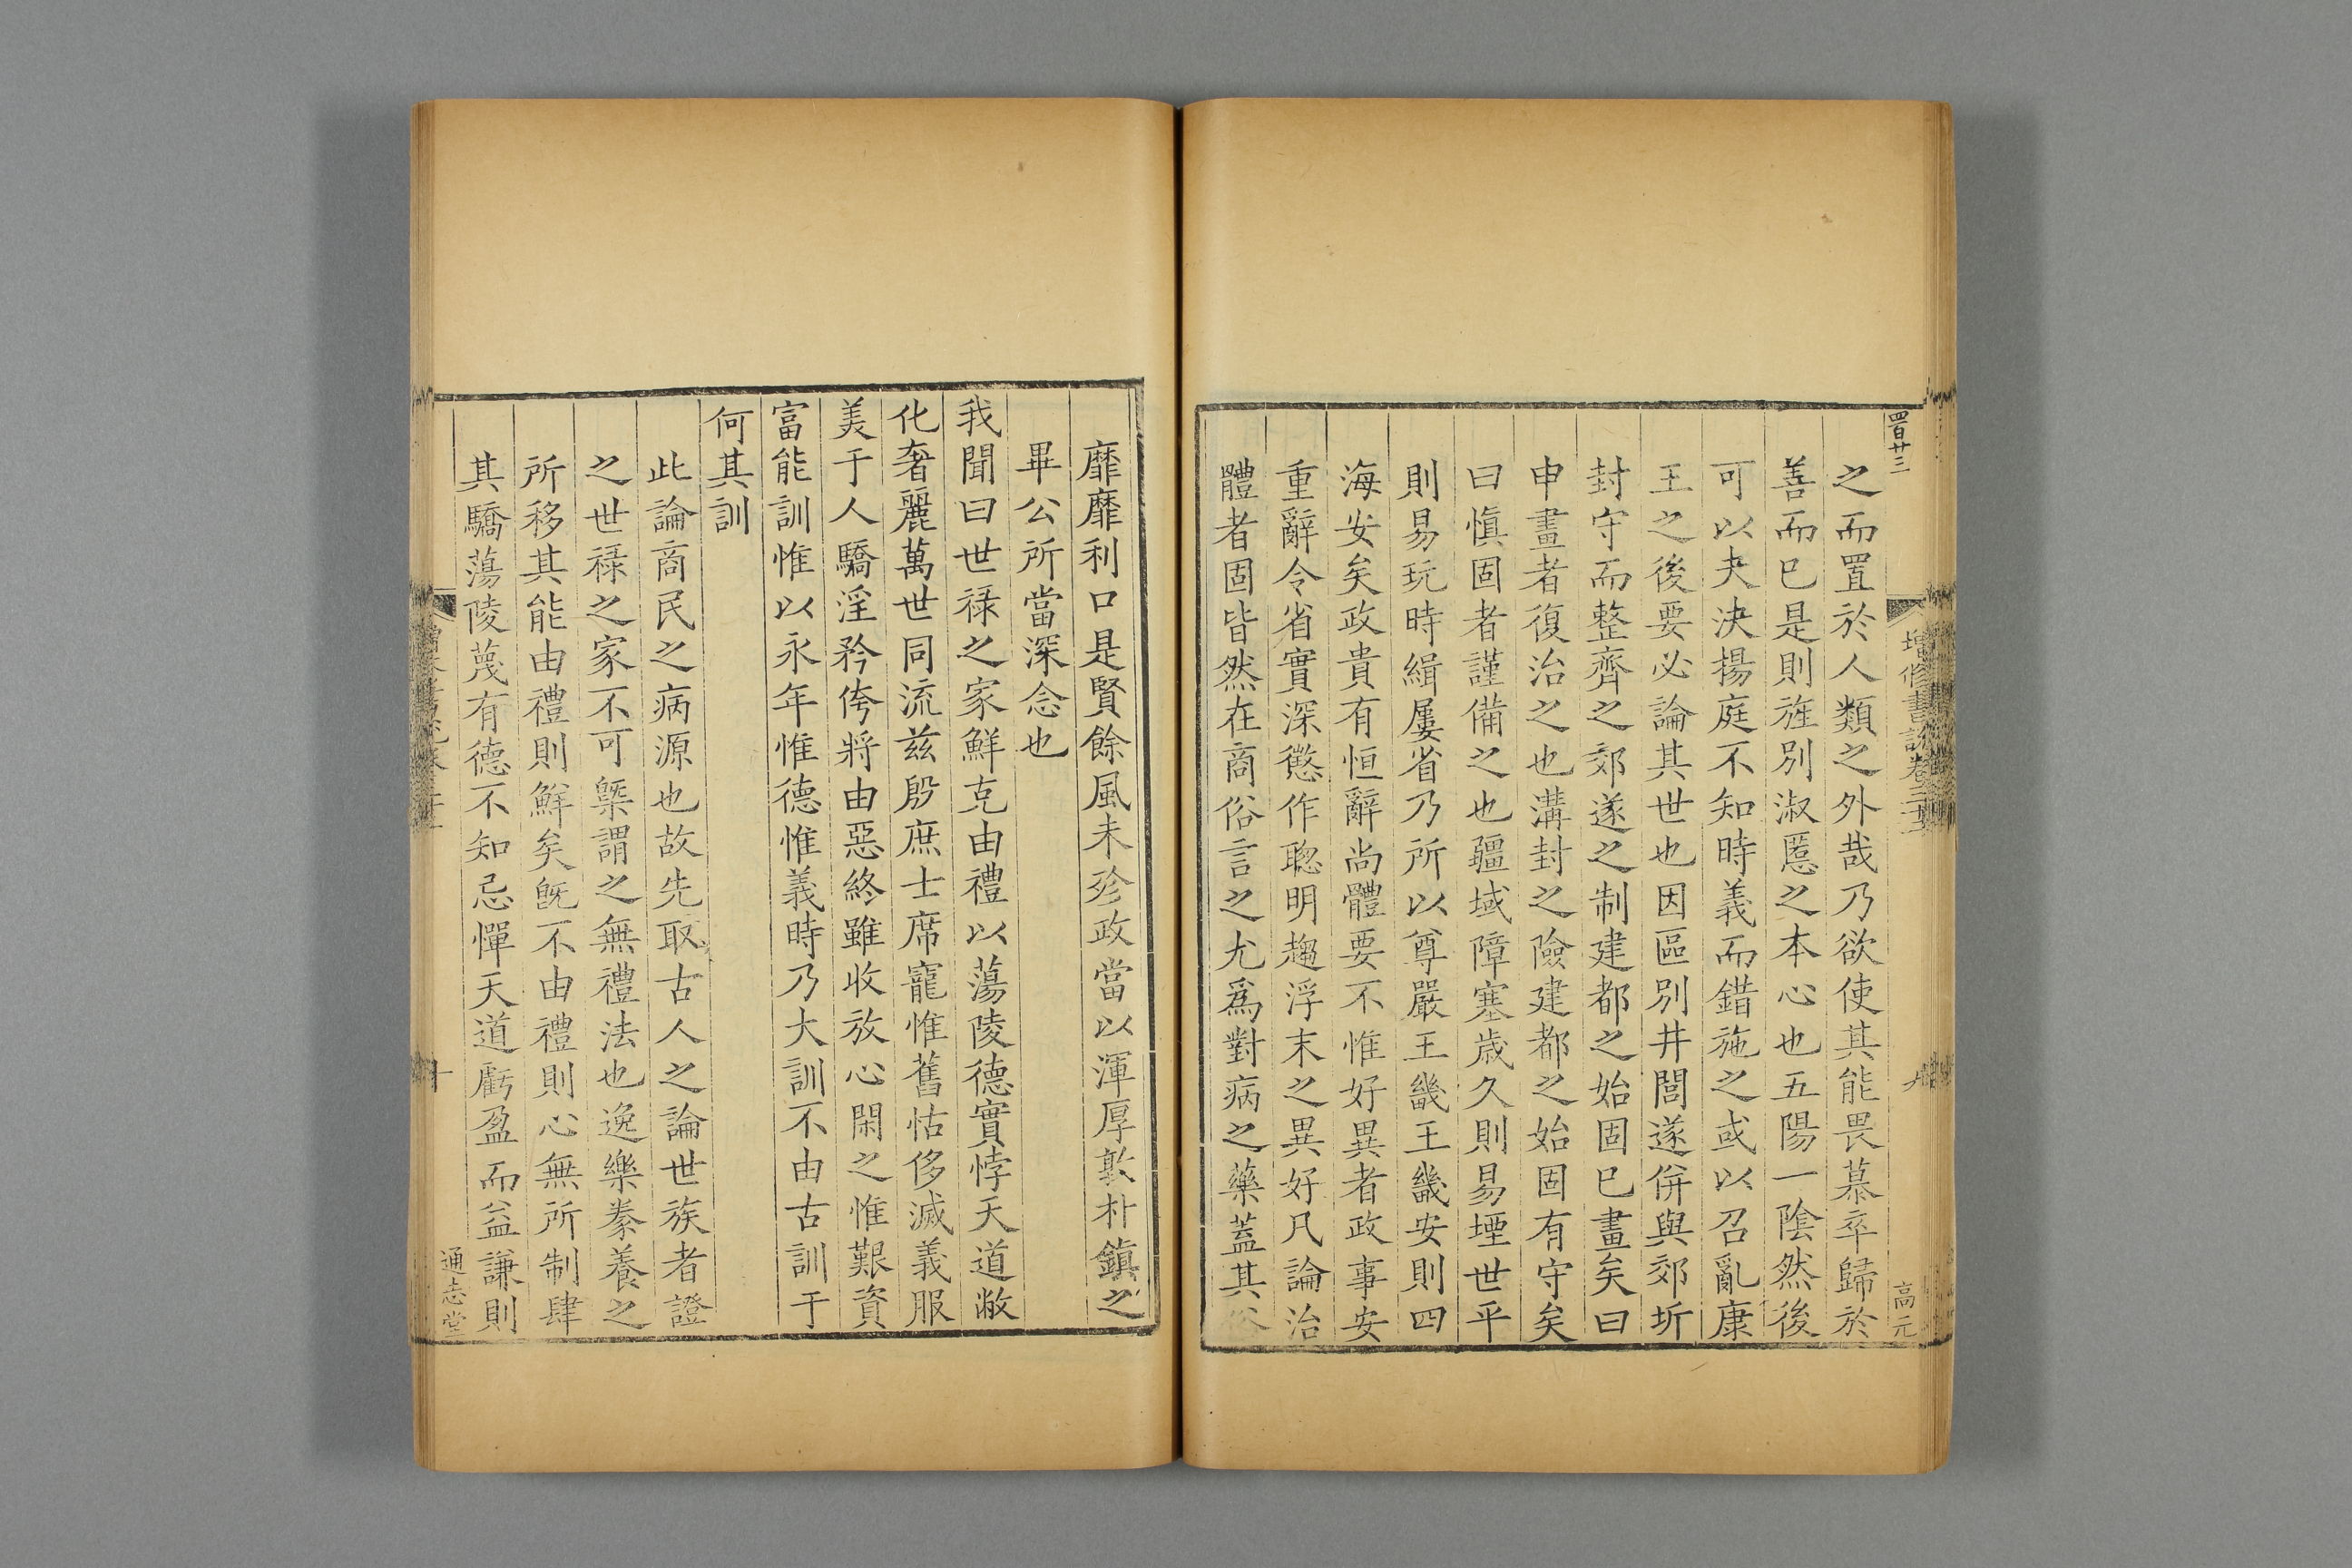 四百廿三
增修書說卷三十三
九
高元
之而置於人類之外哉乃欲使其能畏慕卒歸於
善而已是則旌別淑慝之本心也五陽一陰然後
可以夬決揚庭不知時義而錯施之或以召亂康
王之後要必論其世也因區別井閭遂併與郊圻
封守而整齊之郊遂之制建都之始固已畫矣曰
申畫者復治之也溝封之險建都之始固有守矣
曰慎固者謹備之也疆域障塞歲久則易堙世平
則易玩時緝屢省乃所以尊嚴王畿王畿安則四
海安矣政貴有恒辭尚體要不惟好異者政事安
重辭令省實深懲作聰明趨浮末之異好凡論治
體者固皆然在商俗言之尤爲對病之藥蓋其俗
靡靡利口是賢餘風未殄政當以渾厚敦朴鎮之
畢公所當深念也
我聞曰世祿之家鮮克由禮以蕩陵德實悖天道敝
化奢麗萬世同流茲殷庶士席寵惟舊怙侈滅義服
美于人驕淫矜侉將由惡終雖收放心閑之惟艱資
富能訓惟以永年惟德惟義時乃大訓不由古訓于
何其訓
此論商民之病源也故先取古人之論世族者證
之世祿之家不可槩謂之無禮法也逸樂豢養之
所移其能由禮則鮮矣旣不由禮則心無所制肆
其驕蕩陵蔑有德不知忌憚天道虧盈而益謙則
十
通志堂